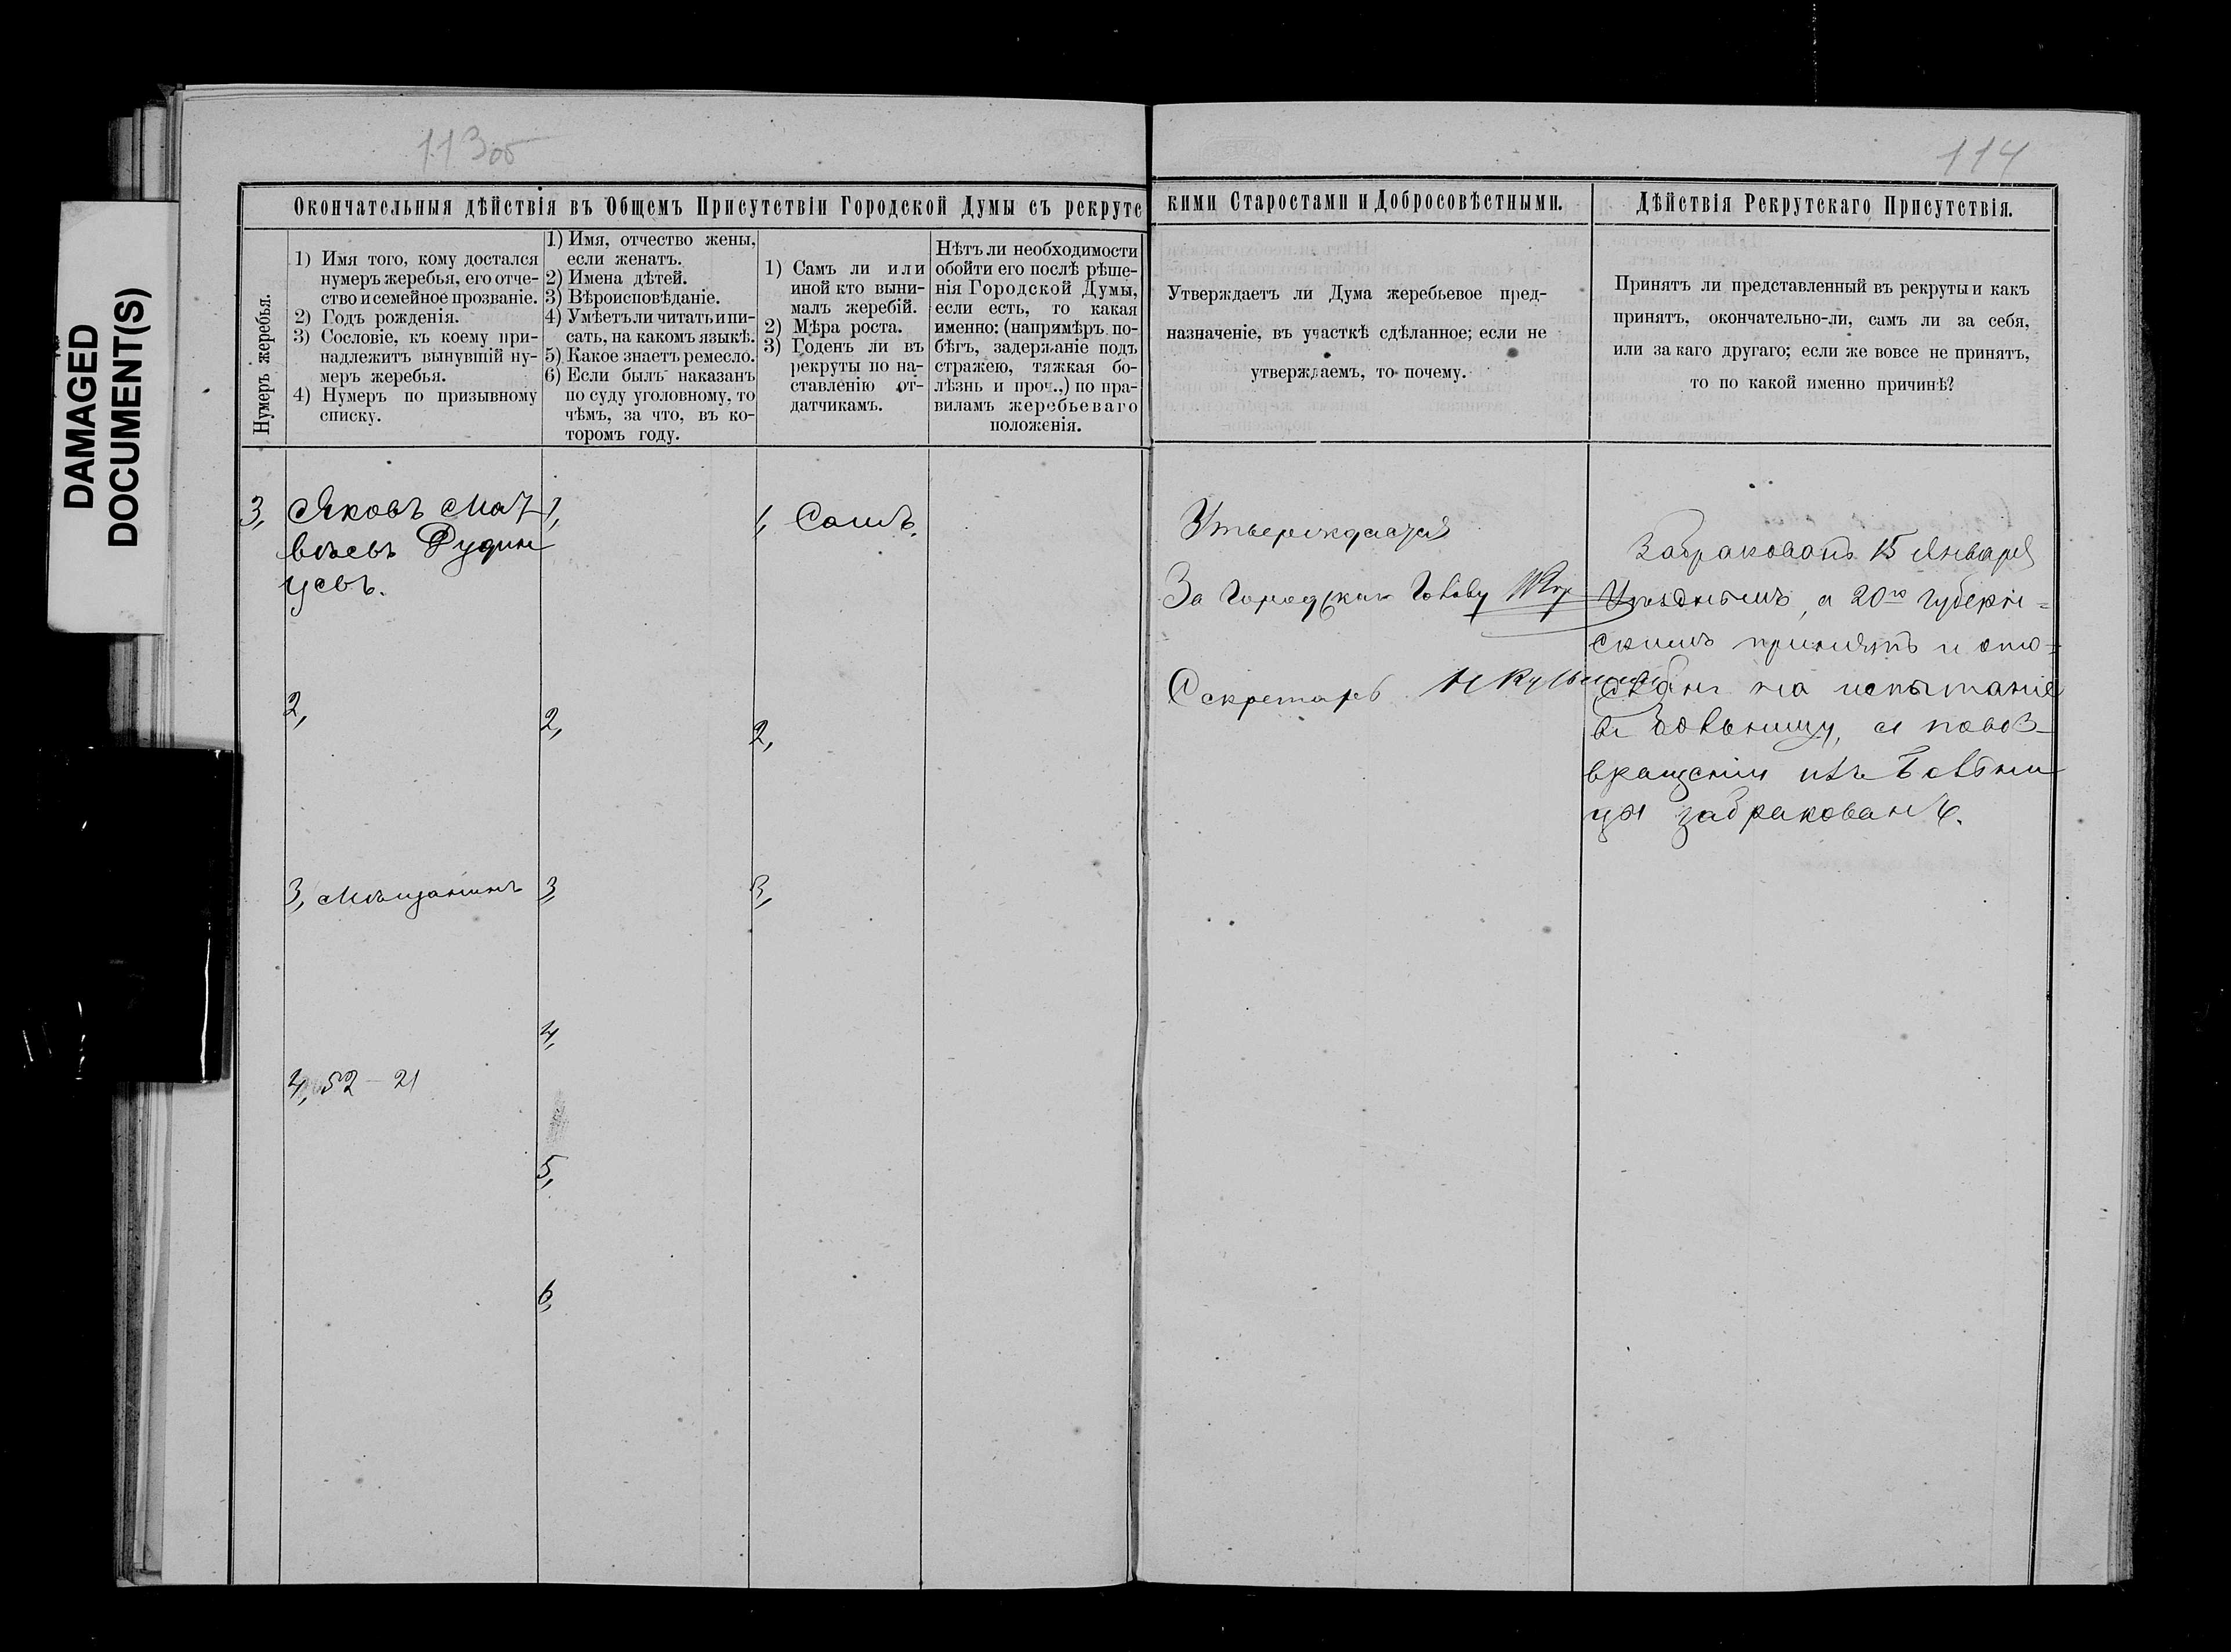 113об
114
DAMAGED
DOCUMENT(S)
Окончательныя дѣйствія въ Общемъ Присутствіи Городской Думы съ рекрутс
Нумеръ жеребья.
1) Имя того, кому достался
нумеръ жеребья, его отче-
ство и семейное прозваніе.
2) Годъ рожденія.
3) Сословіе, къ коему при-
надлежитъ вынувшій ну-
меръ жеребья.
4) Нумеръ по призывному
списку.
1) Имя, отчество жены,
если женатъ.
2) Имена дѣтей.
3) Вѣроисповѣданіе.
4) Умѣетъ ли читать и пи-
сать, на какомъ языкѣ.
5) Какое знаетъ ремесло.
6) Если былъ наказанъ
по суду уголовному, то
чѣмъ, за что, въ ко-
торомъ году.
1) Самъ ли или
иной кто выни-
малъ жеребій.
2) Мѣра роста.
3) Годенъ ли въ
рекруты по на-
ставленію от-
датчикамъ.
Нѣтъ ли необходимости
обойти его послѣ рѣше-
нія Городской Думы,
если есть, то какая
именно: (напримѣръ по-
бѣгъ, задержаніе подъ
стражею, тяжкая бо-
лѣзнь и проч..) по пра-
виламъ жеребьеваго
положенія.
кими Старостами и Добросовѣстными.
Утверждаетъ ли Дума жеребьевое пред-
назначеніе, въ участкѣ сдѣланное; если не
утверждаемъ, то почему.
Дѣйствія Рекрутскаго Присутствія.
Принятъ ли представленный въ рекруты и какъ
принятъ, окончательно-ли, самъ ли за себя,
или за каго другаго; если же вовсе не принятъ,
то по какой именно причинѣ?
3,
Яковъ Мат
вѣевъ Рудин
цевъ.
2,
3, Мѣщанинъ
4, 52 - 21
1,
2,
3,
4,
5,
6,
1, Самъ.
2,
3,
Утверждается
За Городскаго Голову
Секретарь
Забракованъ 15 Января
Уѣзднымъ, а 20го Губерн=
скимъ принятъ и ото=
сланъ на испытаніе
въ больницу, а по воз-
вращеніи изъ больни
цы забракованъ.